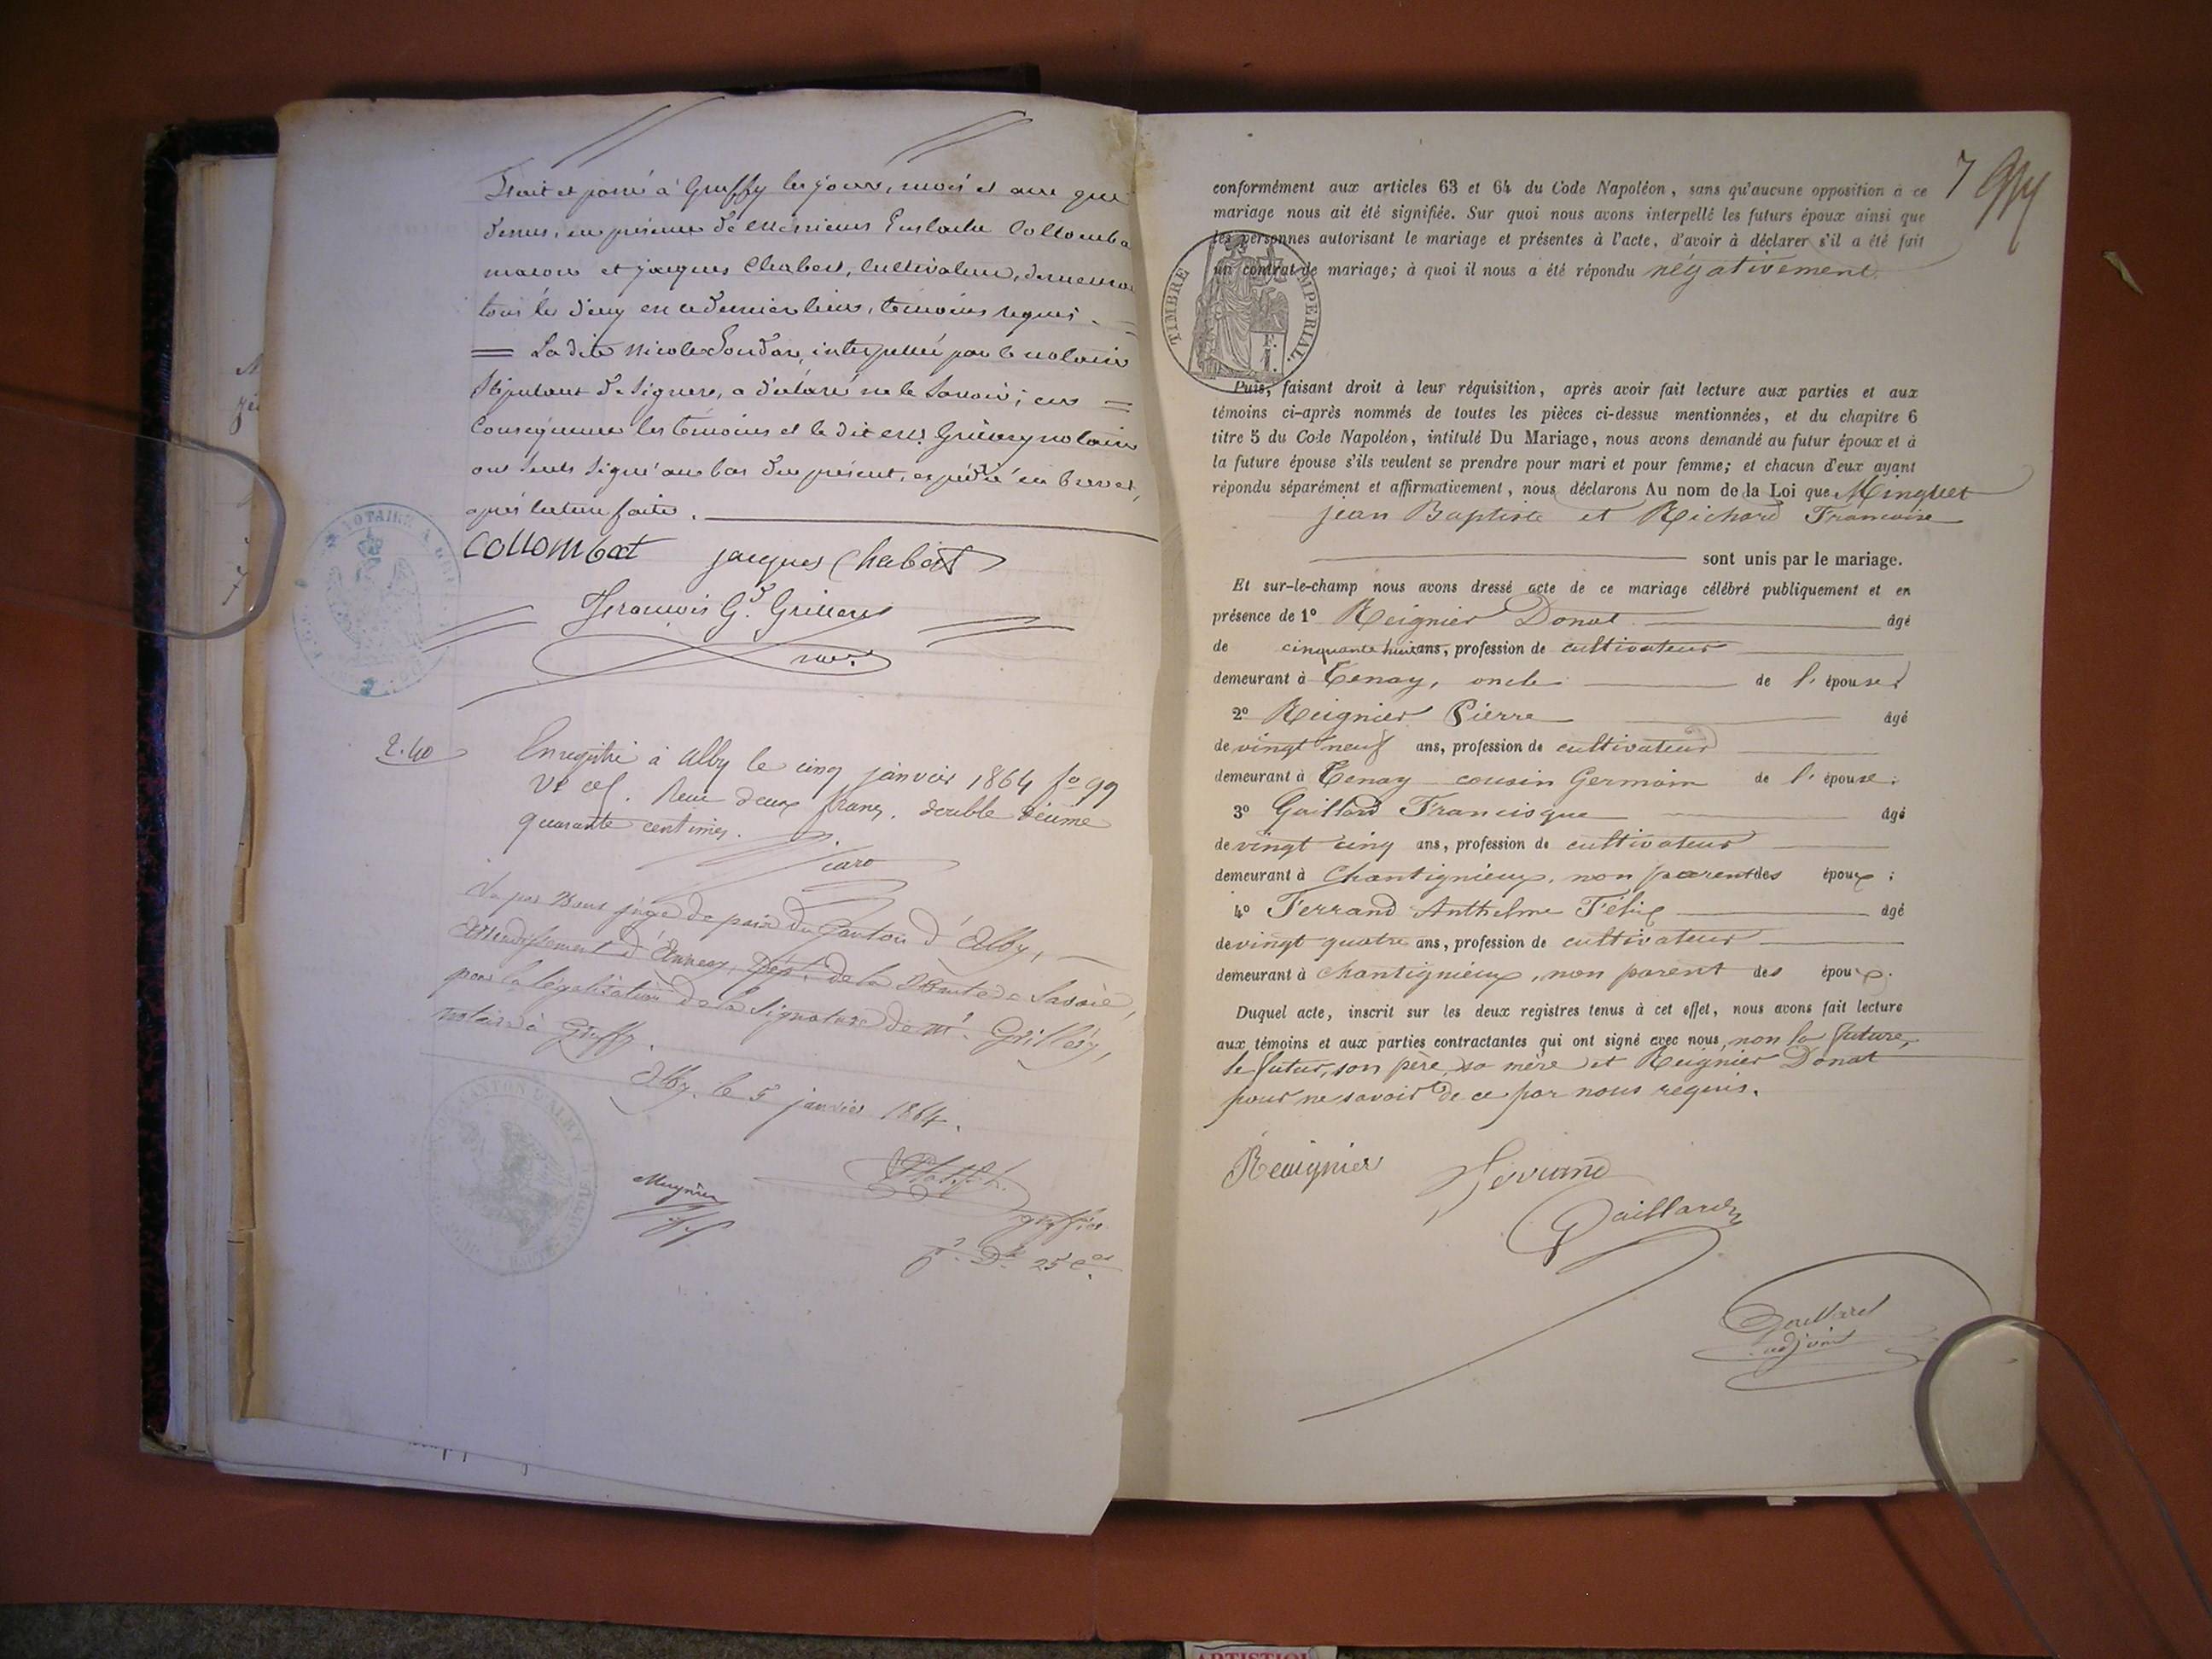 Fait et passé à Gruffy les jours, mois et an que
dessus, en présence de Messieurs Eustache Collomba
maçon et jacques Chabert, cultivateur, demeuran
tous les deux en ce dernier lieu, témoins requis.
= La dite Nicole Soudan, interpellée par le notaire
stipulant de signer, a déclaré ne le savoir; en =
conséquence les témoins et le dit Mr. Grillery notaire
ont seuls signé au bas du présent, expédié en brevet,
après lecture faite.
COLLOMBat jacques Chabert
François Gd. Grillery
nore.
2.40
Enregistré à Alby le cinq janvier 1864 fo 99
Vo c. Reçu deux francs, double décime
quarante centimes.
Vu par Nous juge de paix du Canton d'Alby,
Arrondissement d'Annecy, Dépt. de la Haute Savoie,
pour la légalisation de la Signature de Mr. Grillery,
notaire à Gruffy.
Alby, le 5 janvier 1864.
Mugnier
greffier
25 ces
7
conformément aux articles 63 et 64 du Code Napoléon, sans qu'aucune opposition à ce
mariage nous ait été signifiée. Sur quoi nous avons interpellé les futurs époux ainsi que
les personnes autorisant le mariage et présentes à l'acte, d'avoir à déclarer s'il a été fait
un contrat de mariage; à quoi il nous a été répondu négativement.
TIMBRE IMPÉRIAL.
Puis, faisant droit à leur réquisition, après avoir fait lecture aux parties et aux
témoins ci-après nommés de toutes les pièces ci-dessus mentionnées, et du chapitre 6
titre 5 du Code Napoléon, intitulé Du Mariage, nous avons demandé au futur époux et à
la future épouse s'ils veulent se prendre pour mari et pour femme; et chacun d'eux ayant
répondu séparément et affirmativement, nous déclarons Au nom de la Loi que Minguet
Jean Baptiste et Richard Francoise
sont unis par le mariage.
Et sur-le-champ nous avons dressé acte de ce mariage célébré publiquement et en
présence de 1° Reignier Donat âgé
de cinquante huit ans, profession de cultivateur
demeurant à Tenay, oncle de l'épouse;
2° Reignier Pierre âgé
de vingt neuf ans, profession de cultivateur
demeurant à Tenay cousin Germain de l'épouse;
3° Gaillard Francisque âgé
de vingt cinq ans, profession de cultivateur
demeurant à Chantignieux, non parent des époux;
4° Ferrand Anthelme Félix âgé
de vingt quatre ans, profession de cultivateur
demeurant à Chantignieux, non parent des époux.
Duquel acte, inscrit sur les deux registres tenus à cet effet, nous avons fait lecture
aux témoins et aux parties contractantes qui ont signé avec nous, non la future,
le futur, son père, sa mère et Reignier Donat
pour ne savoir de ce par nous requis.
Reignier Ferrand
Gaillard
Gaillard
adjoint